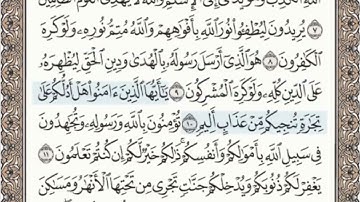 يُرِيدُونَ لِيُطْفِـُٔوا۟ نُورَ ٱللَّهِ بِأَفْوَٰهِهِمْ وَٱللَّهُ مُتِمُّ نُورِهِۦ وَلَوْ كَرِهَ
ٱلْكَٰفِرُونَ ٨ هُوَ ٱلَّذِىٓ أَرْسَلَ رَسُولَهُۥ بِٱلْهُدَىٰ وَدِينِ ٱلْحَقِّ لِيُظْهِرَهُۥ
عَلَى ٱلدِّينِ كُلِّهِۦ وَلَوْ كَرِهَ ٱلْمُشْرِكُونَ ٩ يَٰٓأَيُّهَا ٱلَّذِينَ ءَامَنُوا۟ هَلْ أَدُلُّكُمْ عَلَىٰ
تِجَٰرَةٍ تُنجِيكُم مِّنْ عَذَابٍ أَلِيمٍ ١٠ تُؤْمِنُونَ بِٱللَّهِ وَرَسُولِهِۦ وَتُجَٰهِدُونَ
فِى سَبِيلِ ٱللَّهِ بِأَمْوَٰلِكُمْ وَأَنفُسِكُمْ ۚ ذَٰلِكُمْ خَيْرٌ لَّكُمْ إِن كُنتُمْ تَعْلَمُونَ ١١
يَغْفِرْ لَكُمْ ذُنُوبَكُمْ وَيُدْخِلْكُمْ جَنَّٰتٍ تَجْرِى مِن تَحْتِهَا ٱلْأَنْهَٰرُ وَمَسَٰكِنَ